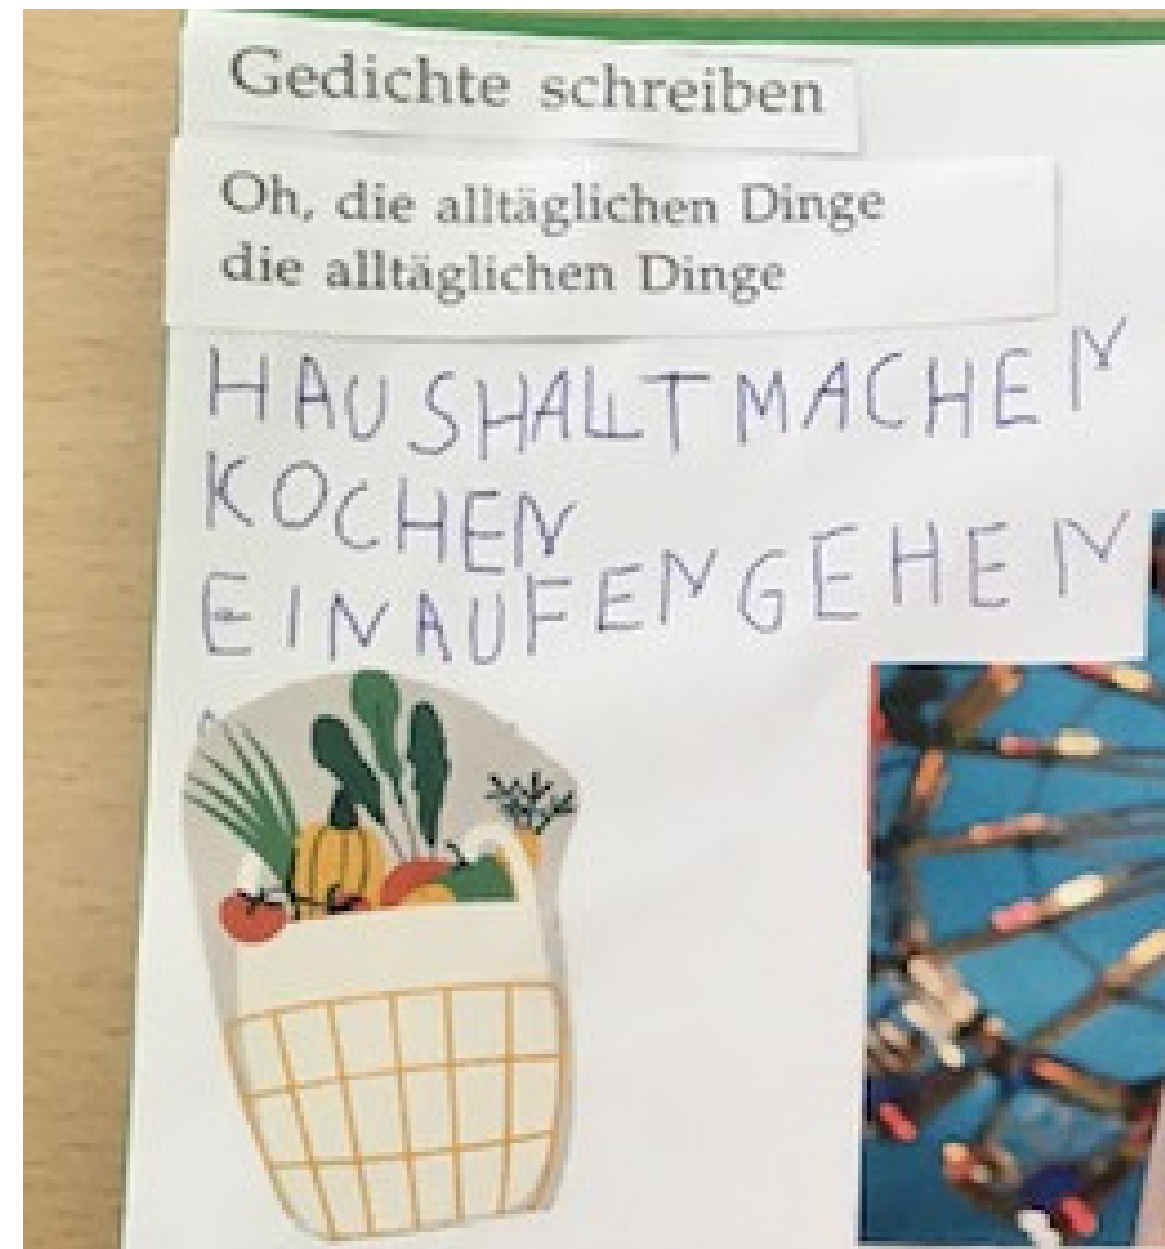 Gedichte schreiben
Oh, die alltäglichen Dinge
die alltäglichen Dinge
HAUSHALLTMACHEN
KOCHEN
EINAUFENGEHEN